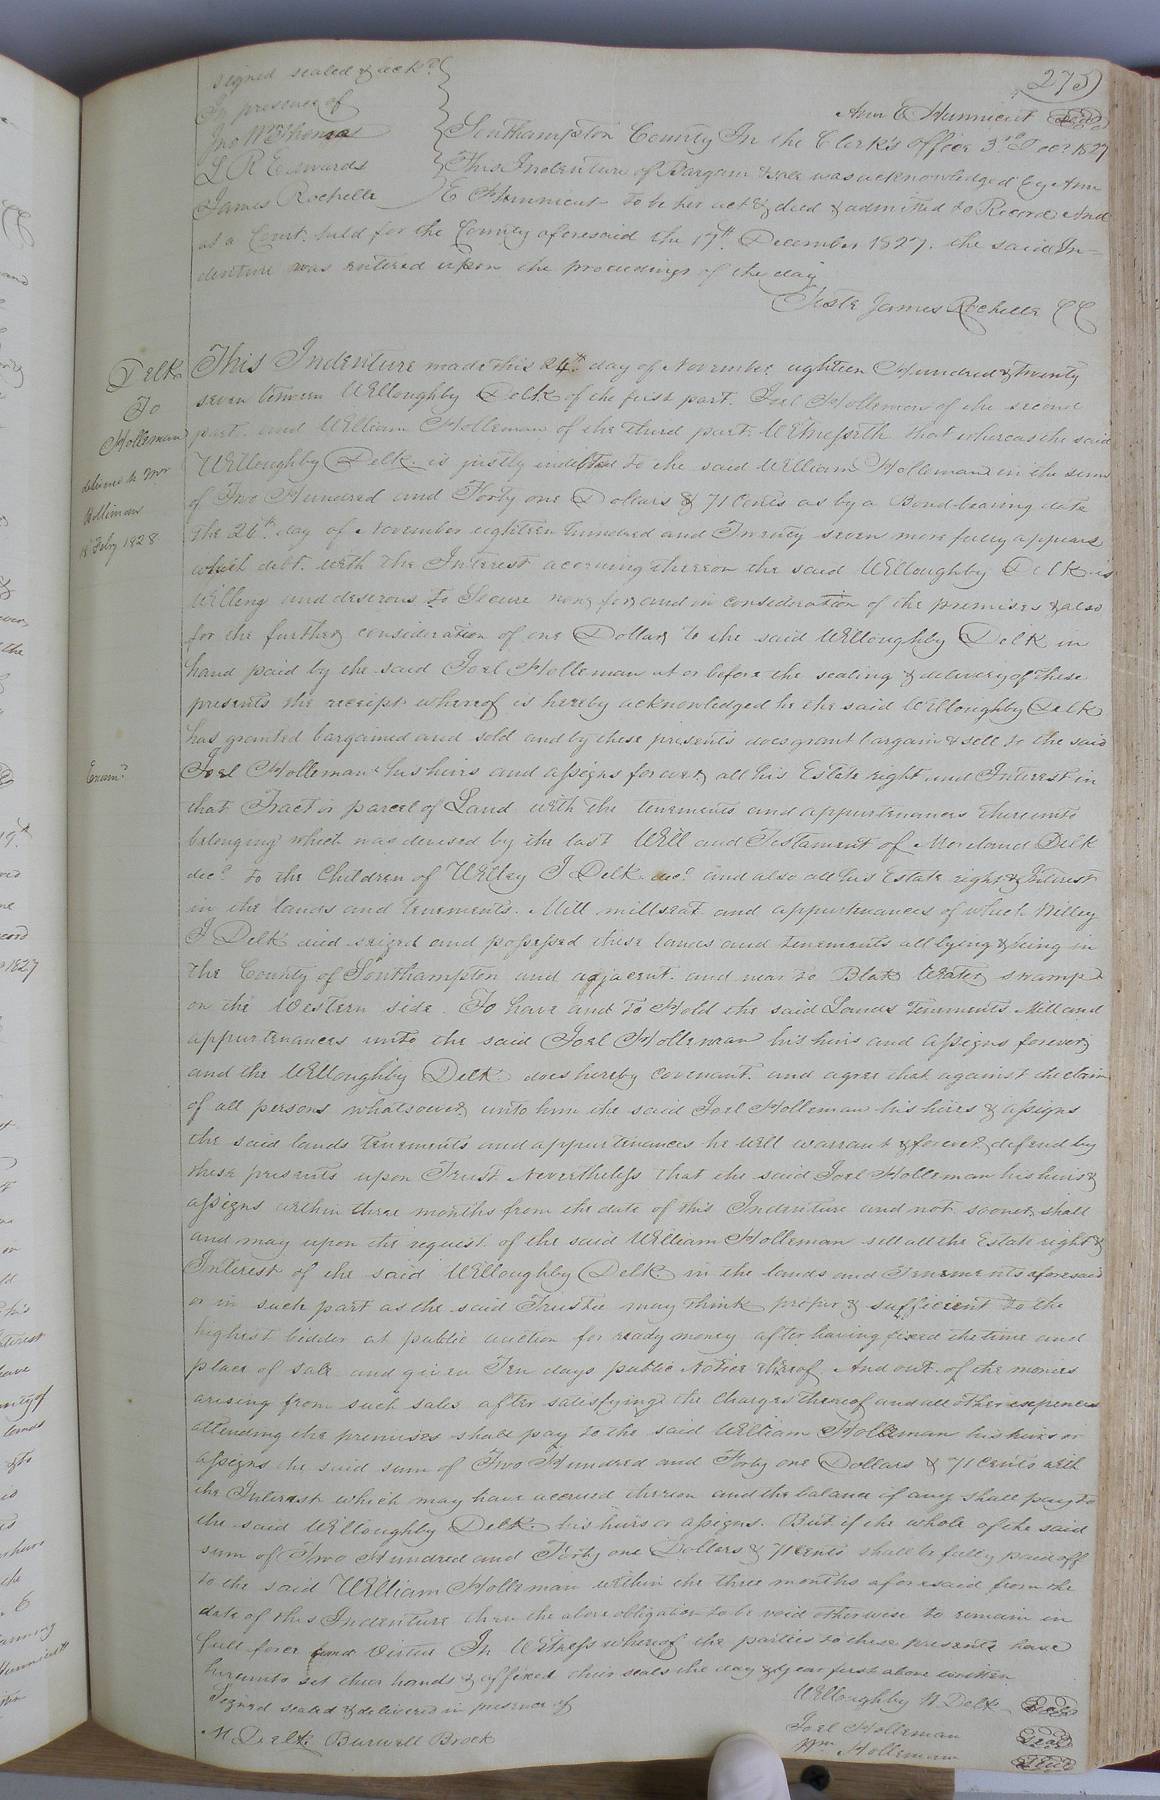 275
signed sealed & ackd.
In presence of
Ann E Hunnicut Seal
Jno W Thomas
Southampton County In the Clerk's Office 3rd Decr 1827
L R Edwards
This Indenture of Bargain & sale was acknowledged by Ann
James Rochelle
E Hunnicut to be her act & deed & admitted to Record And
at a Court held for the County aforesaid the 17th December 1827. the said In-
denture was entered upon the proceedings of the day
Teste James Rochelle CC
Delk
To
Holleman
delivered to Wm
Hollemans
Feby 1828
Examd
This Indenture made this 24th day of November eighteen Hundred & twenty
seven between Willoughby Delk of the first part. Joel Holleman of the second
part. and William Holleman of the third part. Witnesseth that whereas the said
Willoughby Delk is justly indebted to the said William Holleman in the sum
of Two Hundred and Forty one Dollars & 71 Cents as by a Bond bearing date
the 26th day of November eighteen hundred and Twenty seven more fully appears
which debt. with the Interest accruing thereon the said Willoughby Delk is
Willing and deserous to Secure now for and in consideration of the premises & also
for the further consideration of one Dollar to the said Willoughby Delk in
hand paid by the said Joel Holleman at or before the sealing & delivery of these
presents the receipt whereof is hereby acknowledged he the said Willoughby Delk
has granted bargained and sold and by these presents does grant bargain & sell to the said
Joel Holleman his heirs and assigns forever all his Estate right and Interest in
that Tract or parcel of Land with the tenements and appurtenances thereunto
belonging which was devised by the last Will and Testament of Moreland Delk
decd. to the Children of Willey J Delk decd. and also all his Estate right & Interest
in the lands and tenements. Mill millseat and appurtenances of which Willey
J Delk died seized and possessed these lands and tenements all lying & being in
the County of Southampton and adjacent. and near to Blak Water swamp
on the Western side. To have and to Hold the said Lands tenements Mill and
appurtenances unto the said Joel Holleman his heirs and assigns forever
and the Willoughby Delk does hereby covenant. and agree that against the claim
of all persons whatsoever unto him the said Joel Holleman his heirs & assigns
the said lands tenements and appurtenances he will warrant & forever defend by
these presents upon Trust Nevertheless that the said Joel Holleman his heirs &
assigns within three months from the date of this Indenture and not sooner shall
and may upon the request. of the said William Holleman sell all the Estate right &
Interest of the said Willoughby Delk in the lands and Tenements aforesaid
or in such part as the said Trustee may think proper & sufficient to the
highest bidder at public auction for ready money after having fixed the time and
place of sale and given Ten days public Notice thereof And out of the monies
arising from such sales after satisfying the Charges thereof and all other expences
attending the premises shall pay to the said William Holleman his heirs or
assigns the said sum of Two Hundred and Forty one Dollars & 71 Cents with
the Interest which may have accrued thereon and the balance if any shall pay to
the said Willoughby Delk his heirs or assigns. But if the whole of the said
sum of Two Hundred and Forty one Dollars & 71 Cents shall be fully paid off
to the said William Holleman within the three months aforesaid from the
date of this Indenture then the above obligation to be void otherwise to remain in
full force and Virtue In Witness whereof the parties to these presents have
hereunto set their hands & affixed their seals the day & year first above written
Signed sealed & delivered in presence of
Willoughby W Delk Seal
M Delk Burwell Brock
Joel Holleman Seal
Wm Holleman Seal